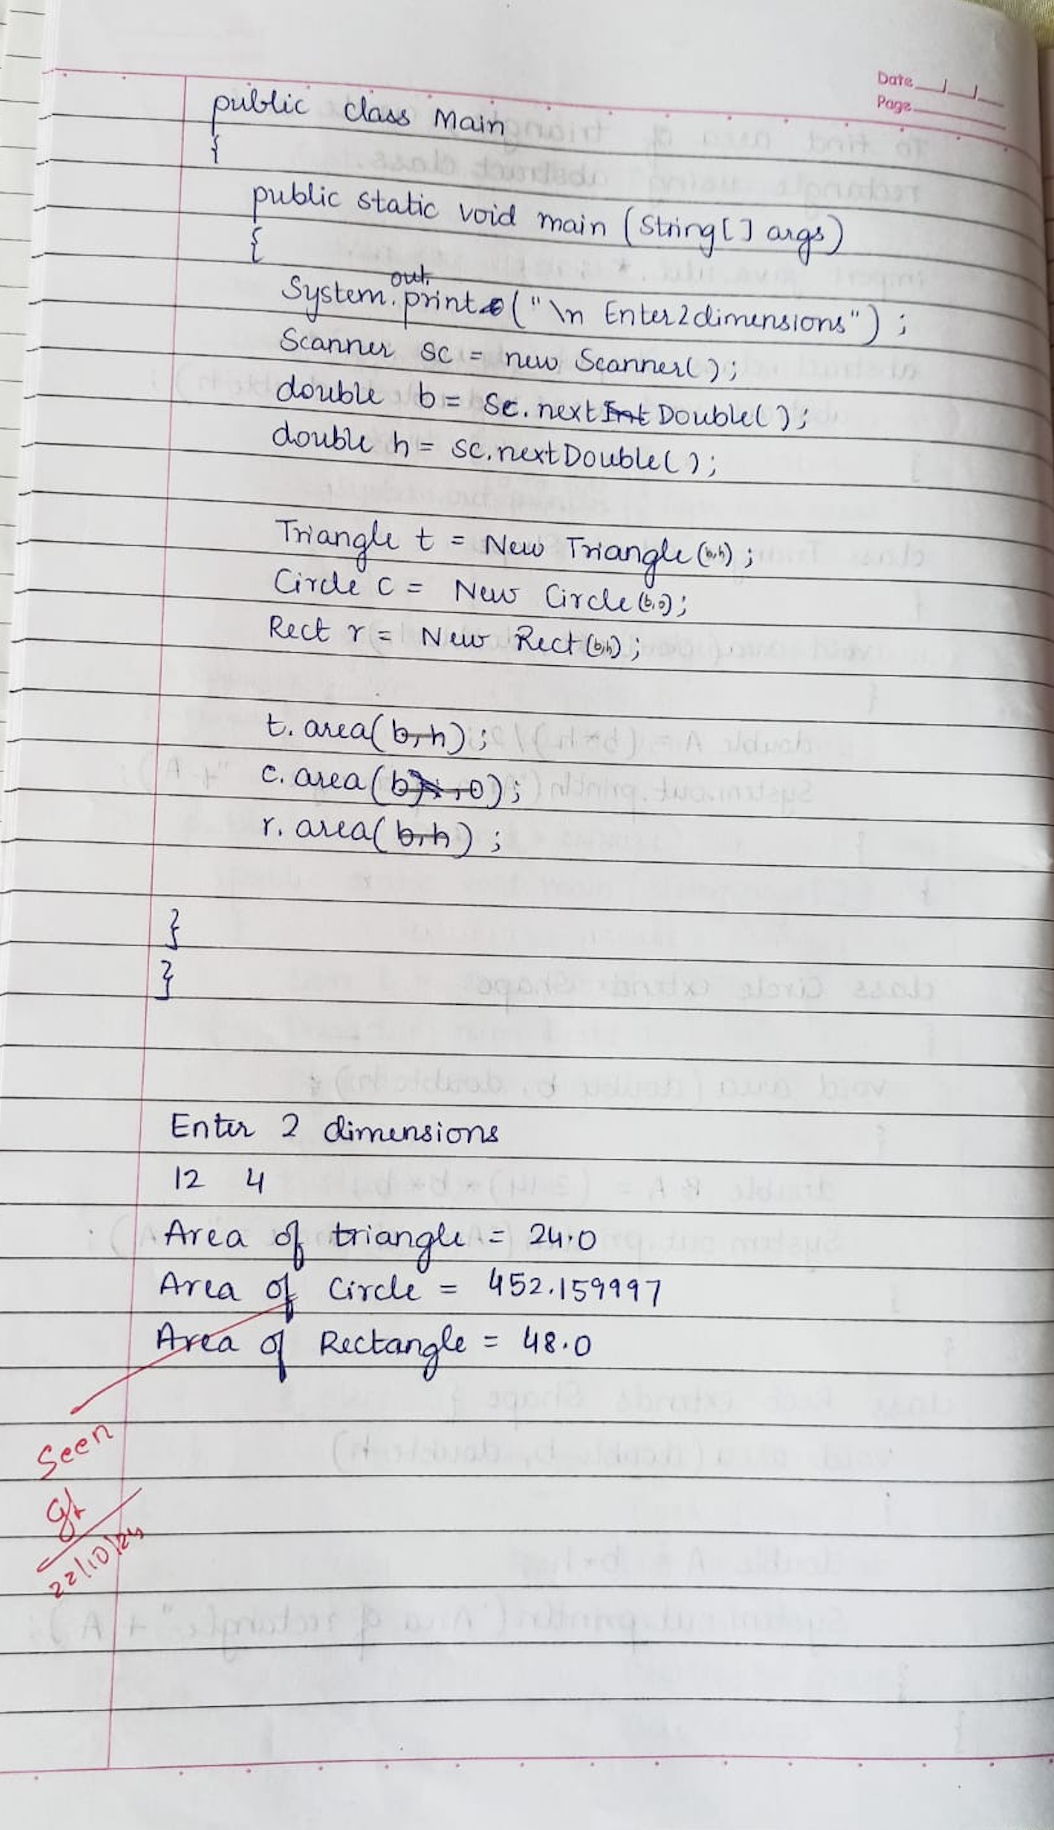 Date
Page
public class Main
{
public static void main (String[] args)
{
System.out.print("\n Enter 2 dimensions");
Scanner sc = new Scanner();
double b = sc.nextInt Double();
double h = sc.nextDouble();
Triangle t = New Triangle(b,h);
Circle c = New Circle(b,0);
Rect r = New Rect(b,h);
t. area(b,h);
c. area(b, 0);
r. area(b,h);
}
}
Enter 2 dimensions
12 4
Area of triangle = 24.0
Area of Circle = 452.159997
Area of Rectangle = 48.0
Seen
22/10/24